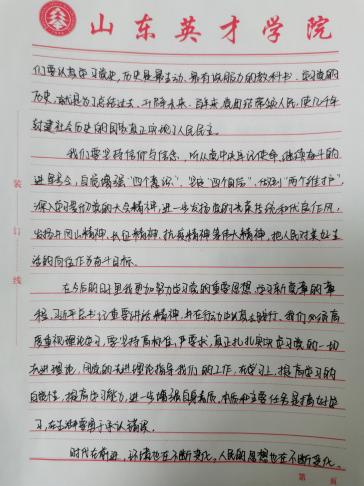 山东英才学院
们要认真学习党史,历史是最生动、最有说服力的教科书。学习党的
历史,就是为了总结过去,开辟未来。百年来,党团结带领人民,使几千年
封建社会历史的国家真正实现了人民民主。
我们要坚持信仰与信念,听从党中央牢记使命、继续奋斗的
进军号令,自觉增强“四个意识”、坚定“四个自信”、做到“两个维护”,
深入学习党的大会精神,进一步发扬党的光荣传统和优良作风,
发扬井冈山精神、长征精神、抗疫精神等伟大精神,把人民对美好生
活的向往作为奋斗目标。
在今后的日子里我更加努力学习党的重要思想,学习新党章的章
程,习近平总书记重要讲话精神,并在行动中认真去践行。我们必须高
度重视理论学习,要坚持高标准,严要求,真正扎扎实实学习党的一切
先进理论,用党的先进理论指导我们的工作,在学习上,提高学习的
自觉性,提高学习能力,进一步增强自身素质,本质和主要任务是搞好学
习,在生活中要勇于承认错误。
时代在前进,环境也在不断变化,人民的思想也在不断变
装
订
线
第 页